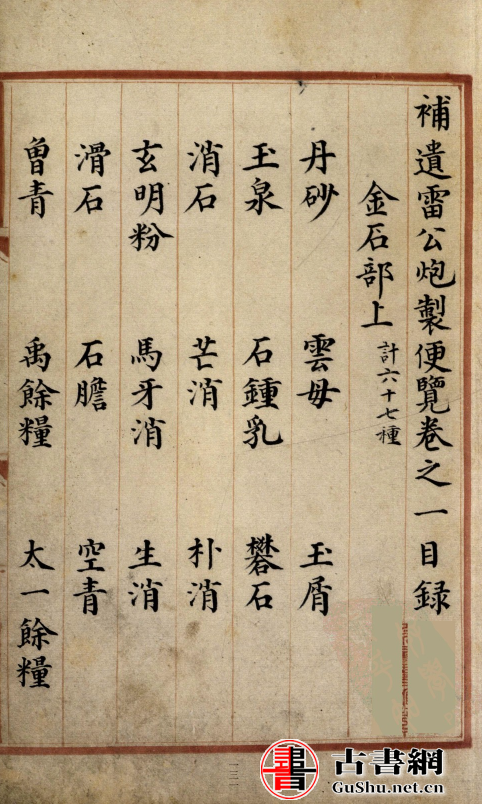 補遺雷公炮製便覽卷之一目録
金石部上 計六十七種
丹砂 雲母 玉屑
玉泉 石鍾乳 礬石
消石 芒消 朴消
玄明粉 馬牙消 生消
滑石 石膽 空青
曾青 禹餘糧 太一餘糧
書 古書網
GuShu.net.cn